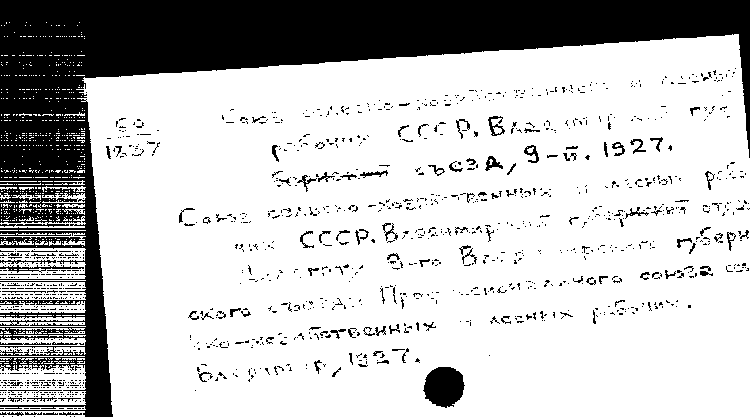 59
1337
Союз сельско-хозяйственных и лесных
рабочих СССР. Владимирский губ
бернский съезд, 9-й. 1927.
Союз сельско-хозяйственных и лесных рабо
чих СССР. Владимирский губернский отдел
Делегату 9-го Владимирского губерн
ского съезда Профессионального союза сель
ско-хозяйственных и лесных рабочих.
Владимир, 1927.